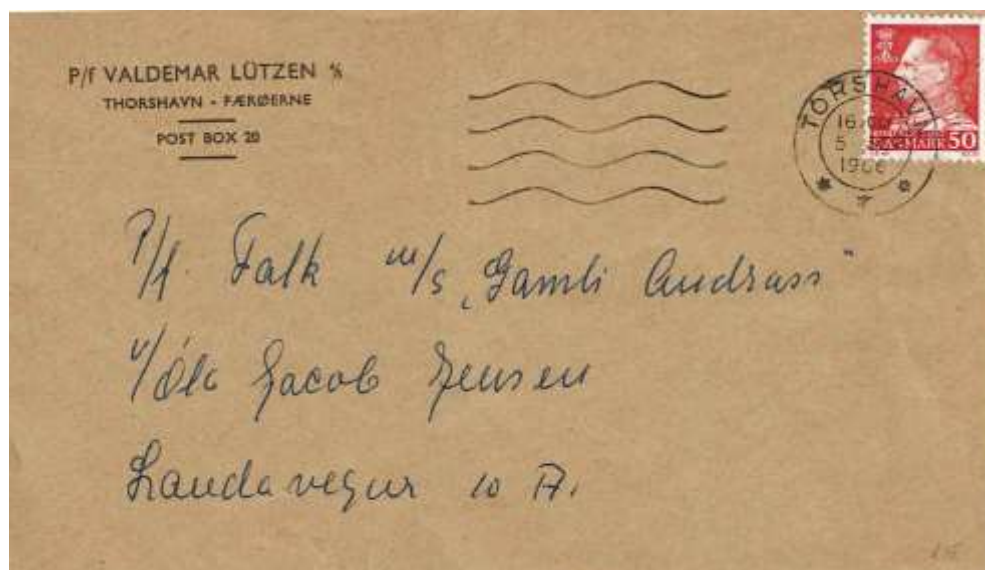 P/f VALDEMAR LÜTZEN %
THORSHAVN - FÆRØERNE
POST BOX 20
TORSHAVN
16
5
1966
DANMARK 50
P/f. Falk m/s „Gamli Andrass"
v/Óla Jacob Jensen
Landavegur 10 A.